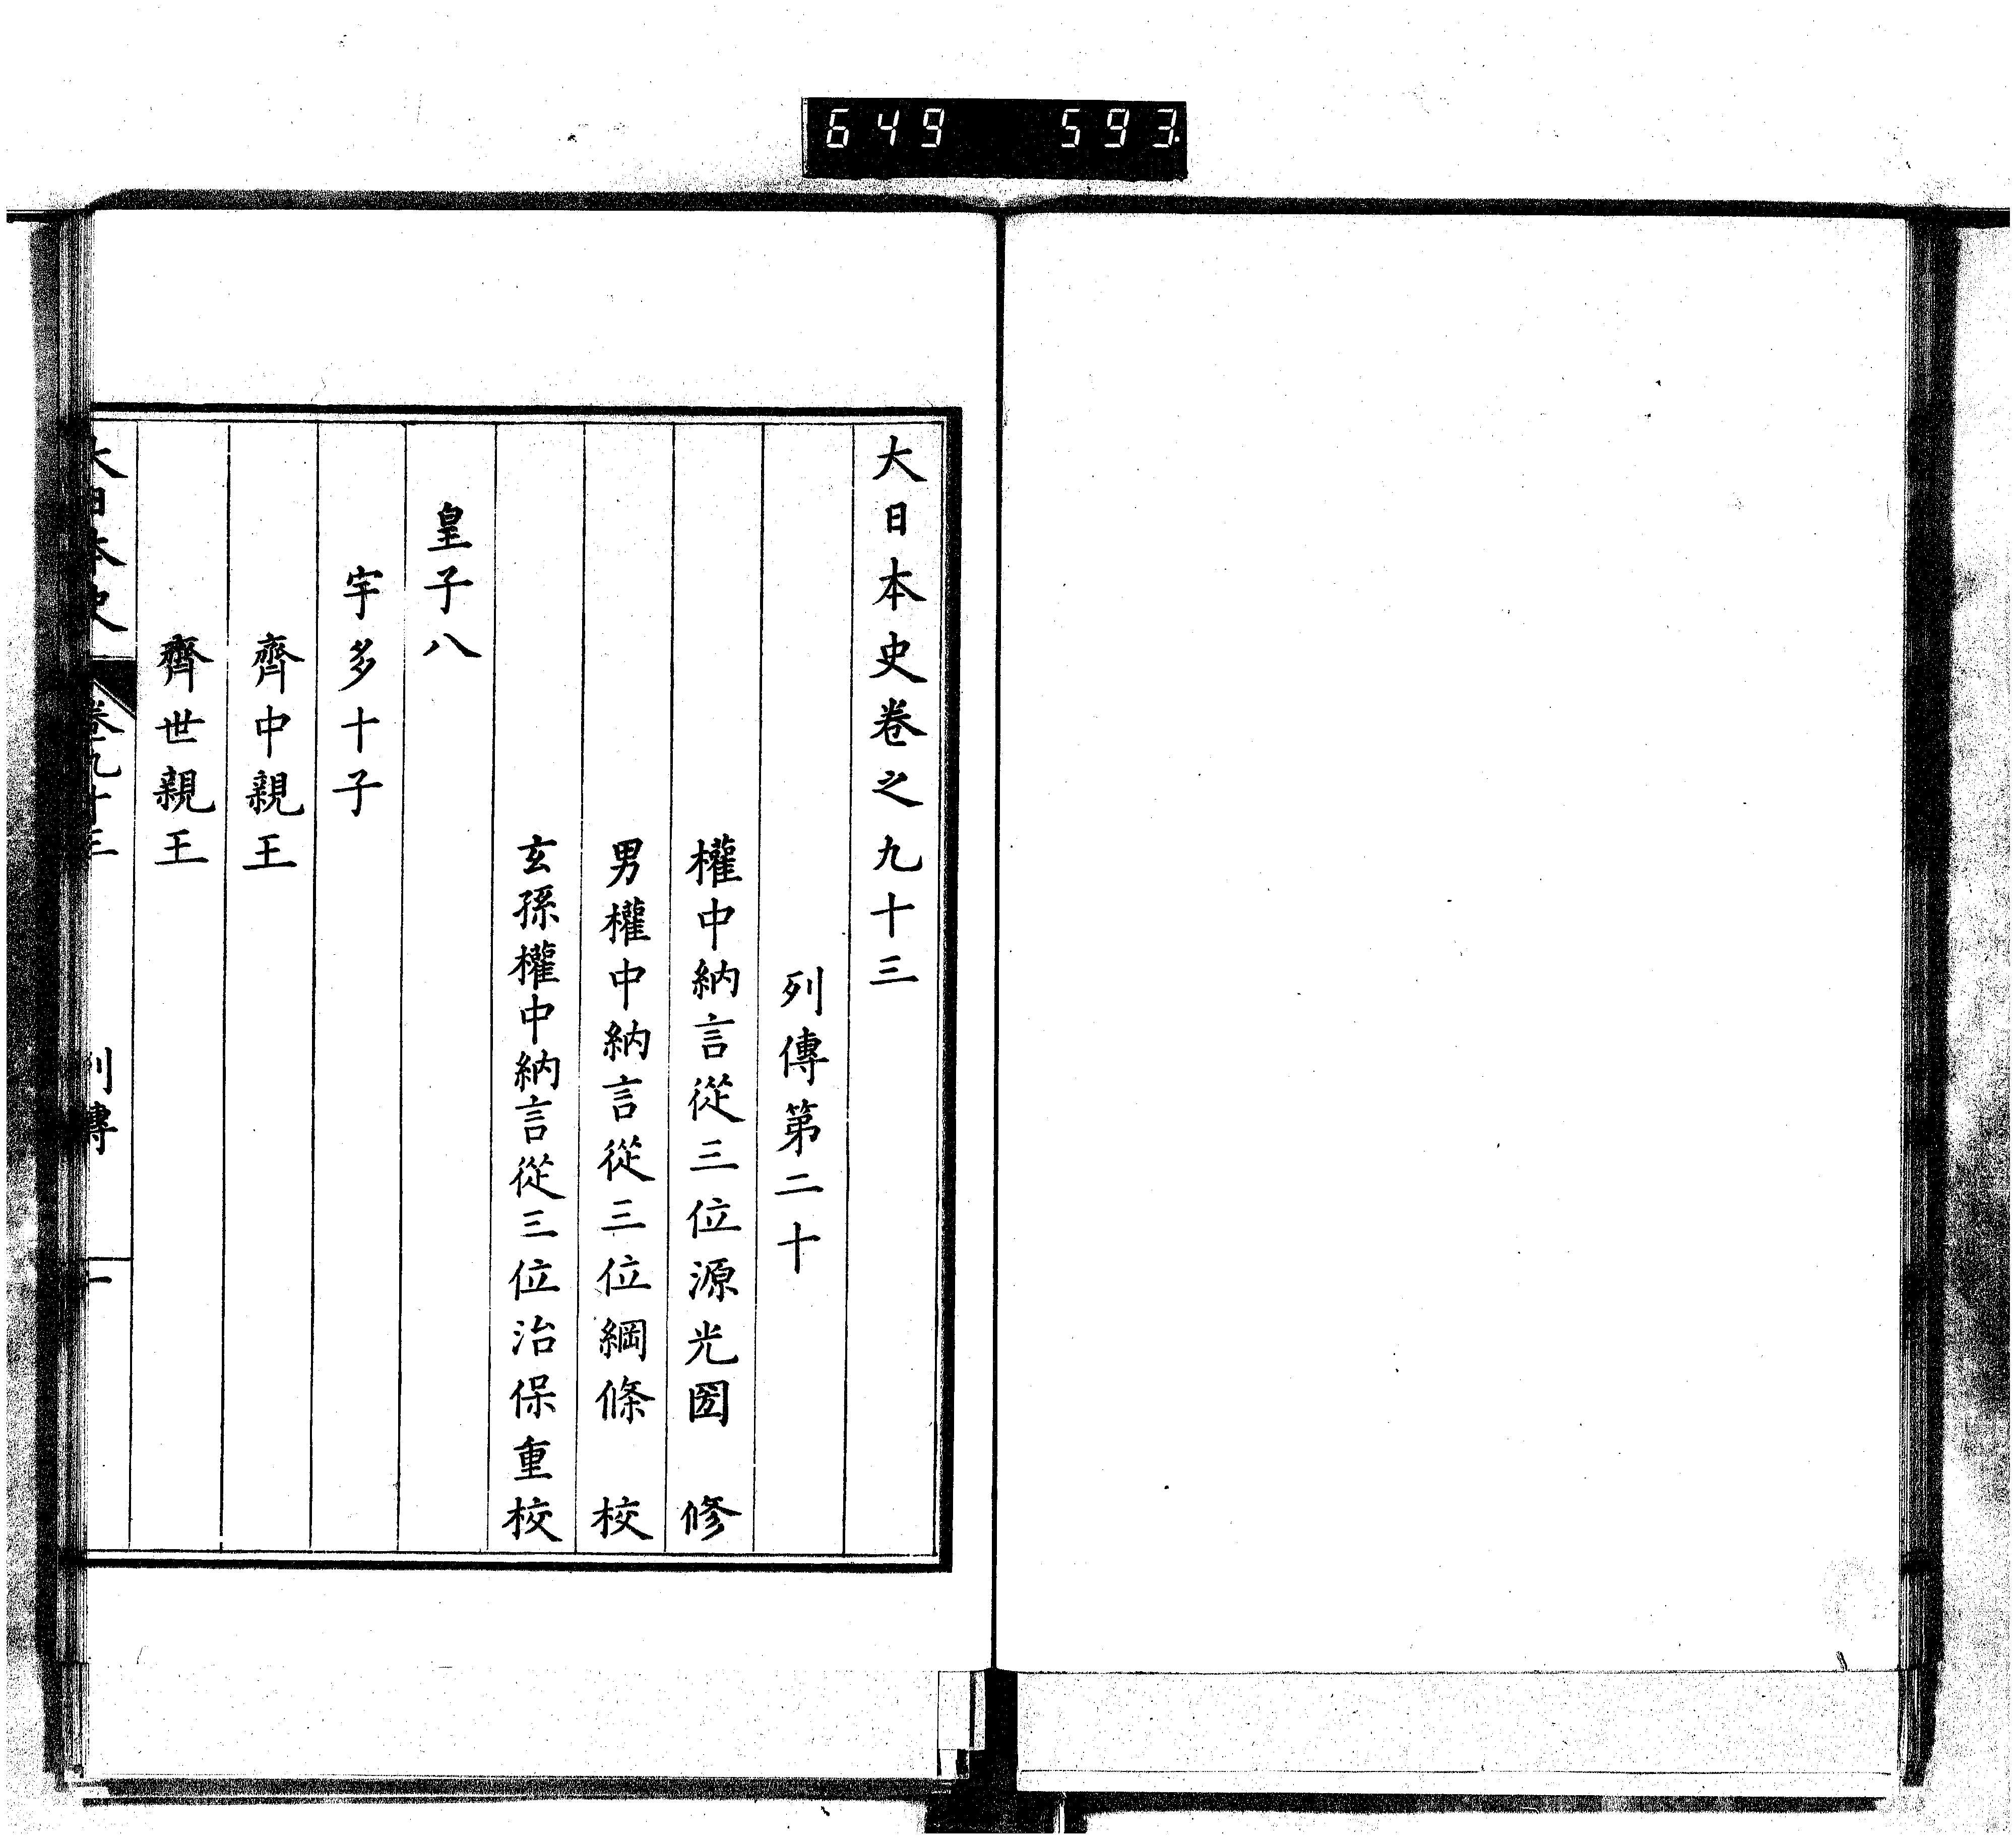 649 593
大日本史卷之九十三
列傳第二十
權中納言從三位源光圀 修
男權中納言從三位綱條 校
玄孫權中納言從三位治保重校
皇子八
宇多十子
齊中親王
齊世親王
大日本史 卷九十三 列傳 一